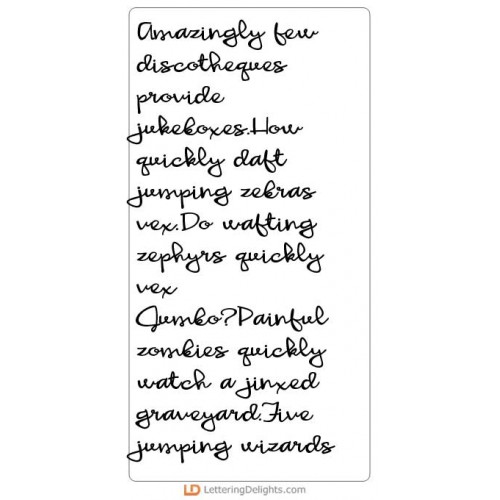 Amazingly few
discotheques
provide
jukeboxes.How
quickly daft
jumping zebras
vex.Do wafting
zephyrs quickly
vex
Jumbo?Painful
zombies quickly
watch a jinxed
graveyard.Five
jumping wizards
LD LetteringDelights.com